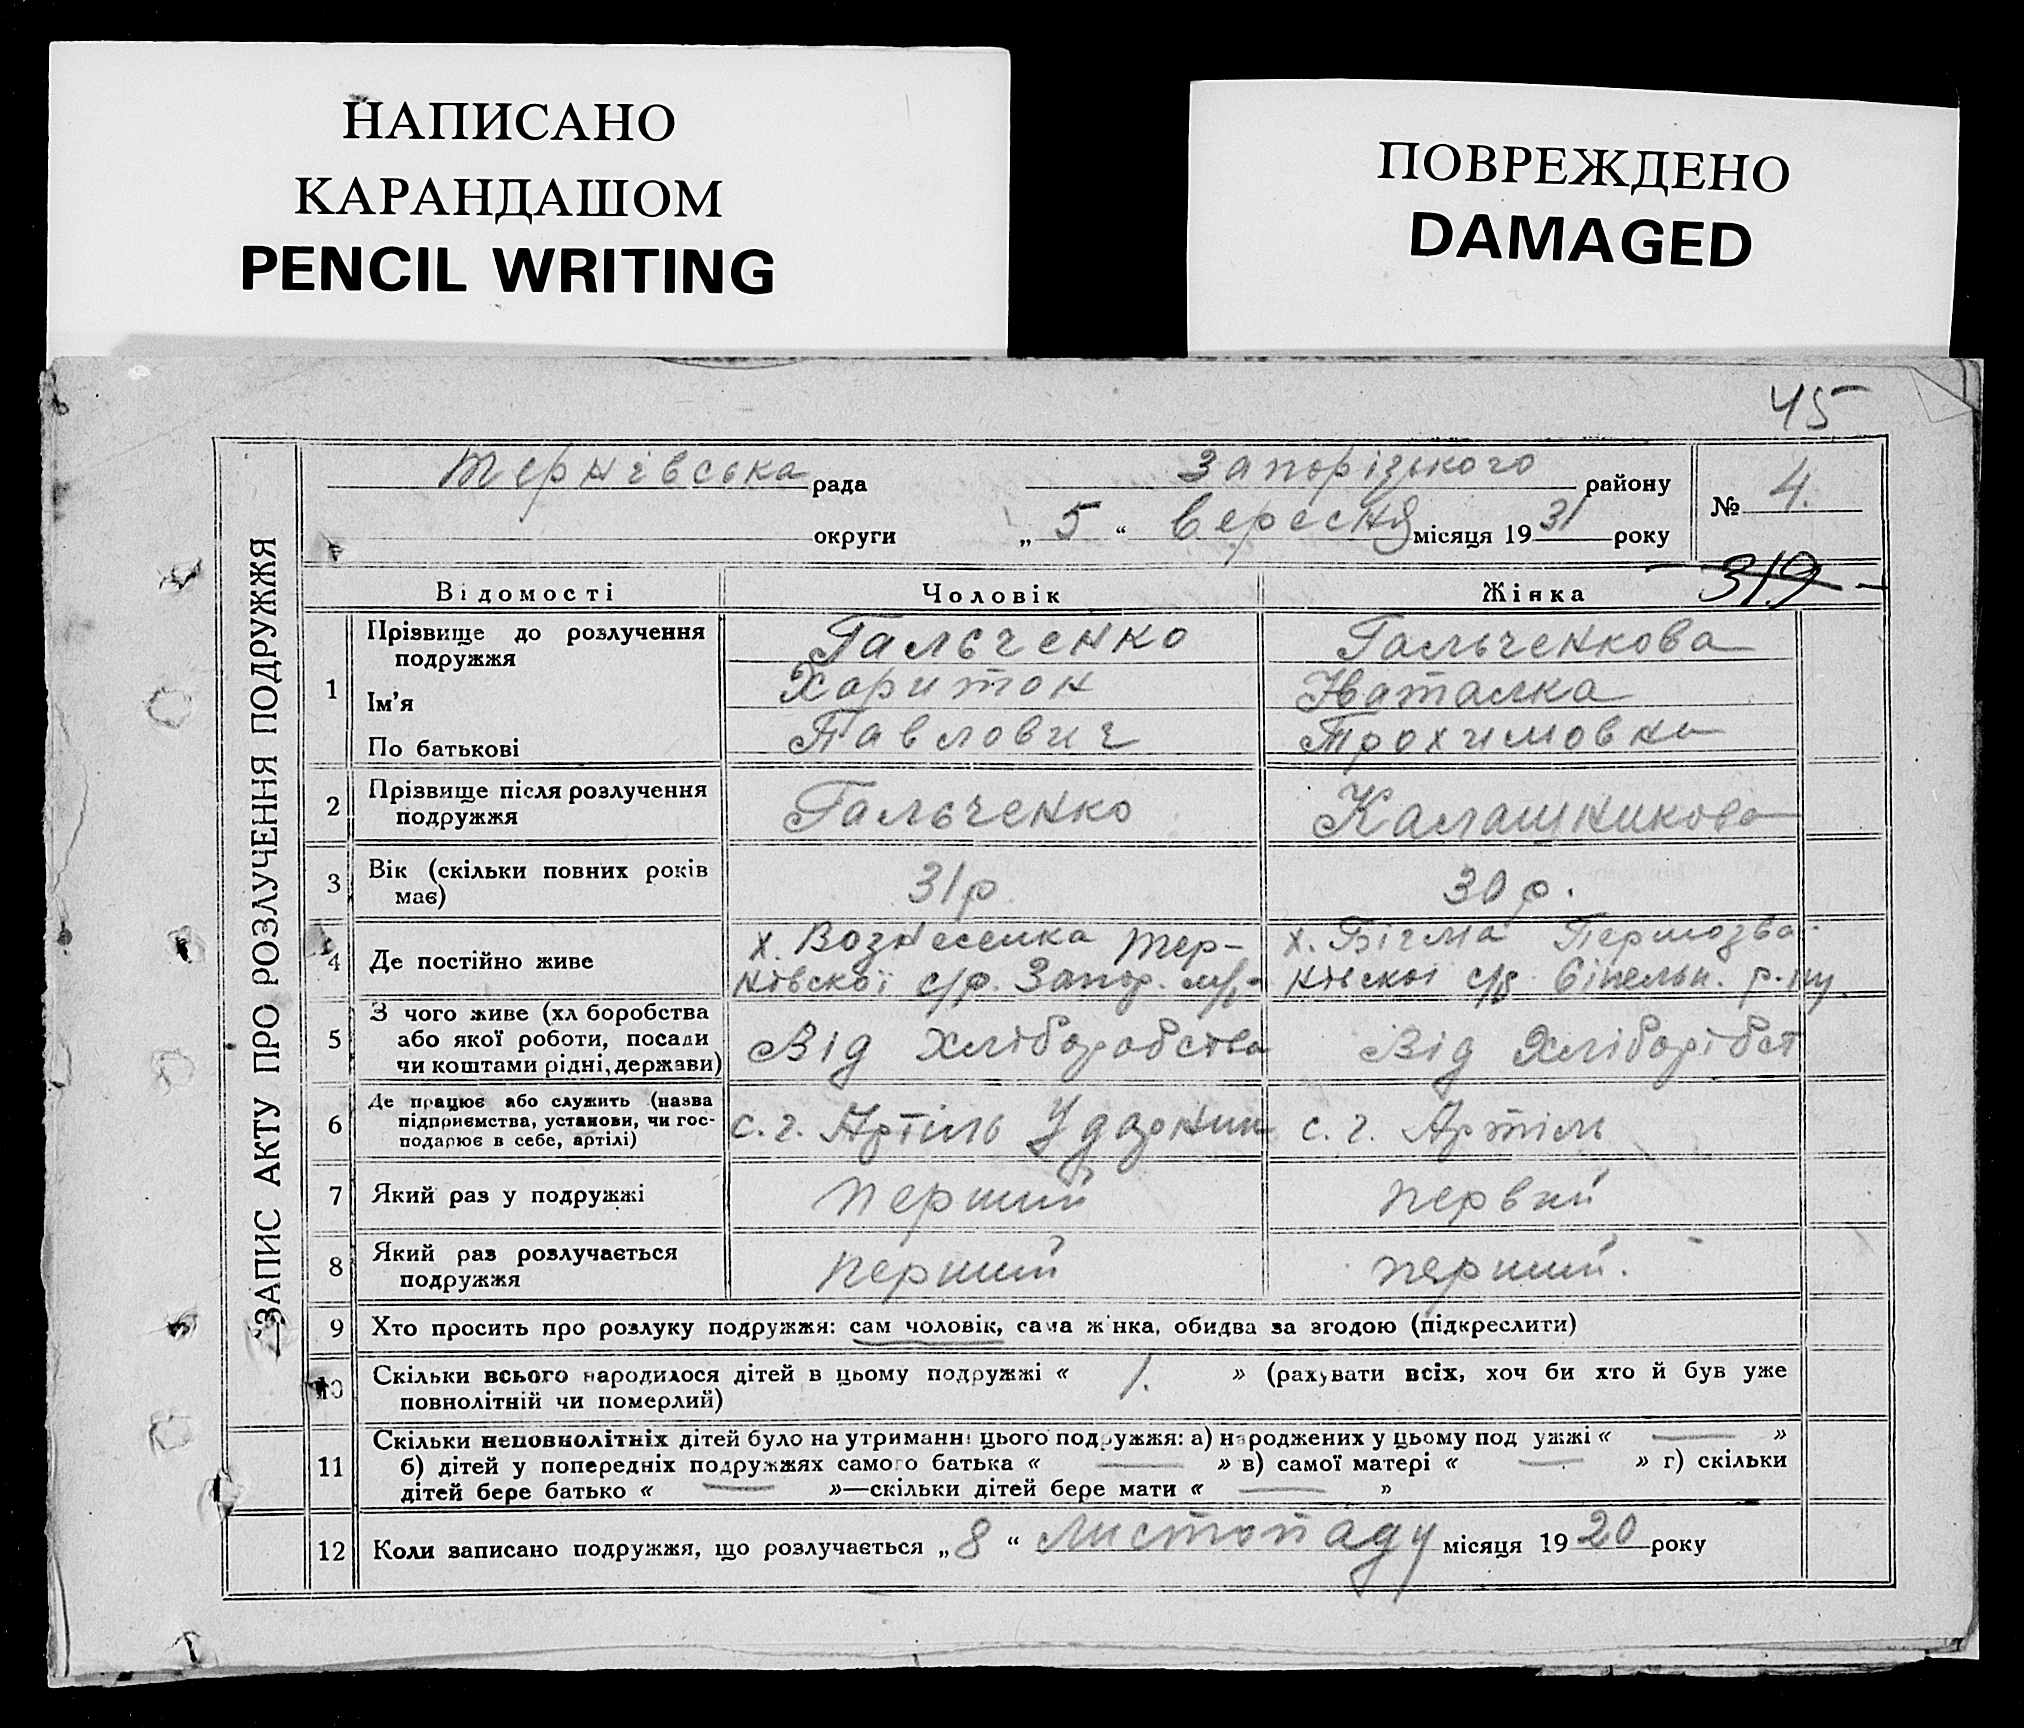 НАПИСАНО
КАРАНДАШОМ
PENCIL WRITING
ПОВРЕЖДЕНО
DAMAGED
45
ЗАПИС АКТУ ПРО РОЗЛУЧЕННЯ ПОДРУЖЖЯ
Тернівська рада Запорізького району № 4.
округи „ 5 “ Вересня місяця 1931 року
319
Відомості Чоловік Жінка
1 Прізвище до розлучення подружжя Гальченко Гальченкова
Ім'я Харитон Наталка
По батькові Павлович Трохимовна
2 Прізвище після розлучення подружжя Гальченко Калашникова
3 Вік (скільки повних років має) 31 р 30 р.
4 Де постійно живе х. Вознесенка Тер- х. Вігма
нівскої с/р. Запор. нівскої с/р р.ну
5 З чого живе (хліборобства
або якої роботи, посади
чи коштами рідні, держави) Від хліборобства Від хліборобст
6 Де працює або служить (назва
підприємства, установи, чи гос-
подарює в себе, артілі) с. г. Артіль Ударник с. г. Артіль
7 Який раз у подружжі перший первий
8 Який раз розлучається подружжя перший перший.
9 Хто просить про розлуку подружжя: сам чоловік, сама жінка, обидва за згодою (підкреслити)
10 Скільки всього народилося дітей в цьому подружжі « 1. » (рахувати всіх, хоч би хто й був уже
повнолітній чи померлий)
11 Скільки неповнолітніх дітей було на утриманні цього подружжя: а) народжених у цьому подружжі « — »
б) дітей у попередніх подружжях самого батька « — » в) самої матері « — » г) скільки
дітей бере батько « — »—скільки дітей бере мати « — »
12 Коли записано подружжя, що розлучається „ 8 “ Листопаду місяця 1920 року